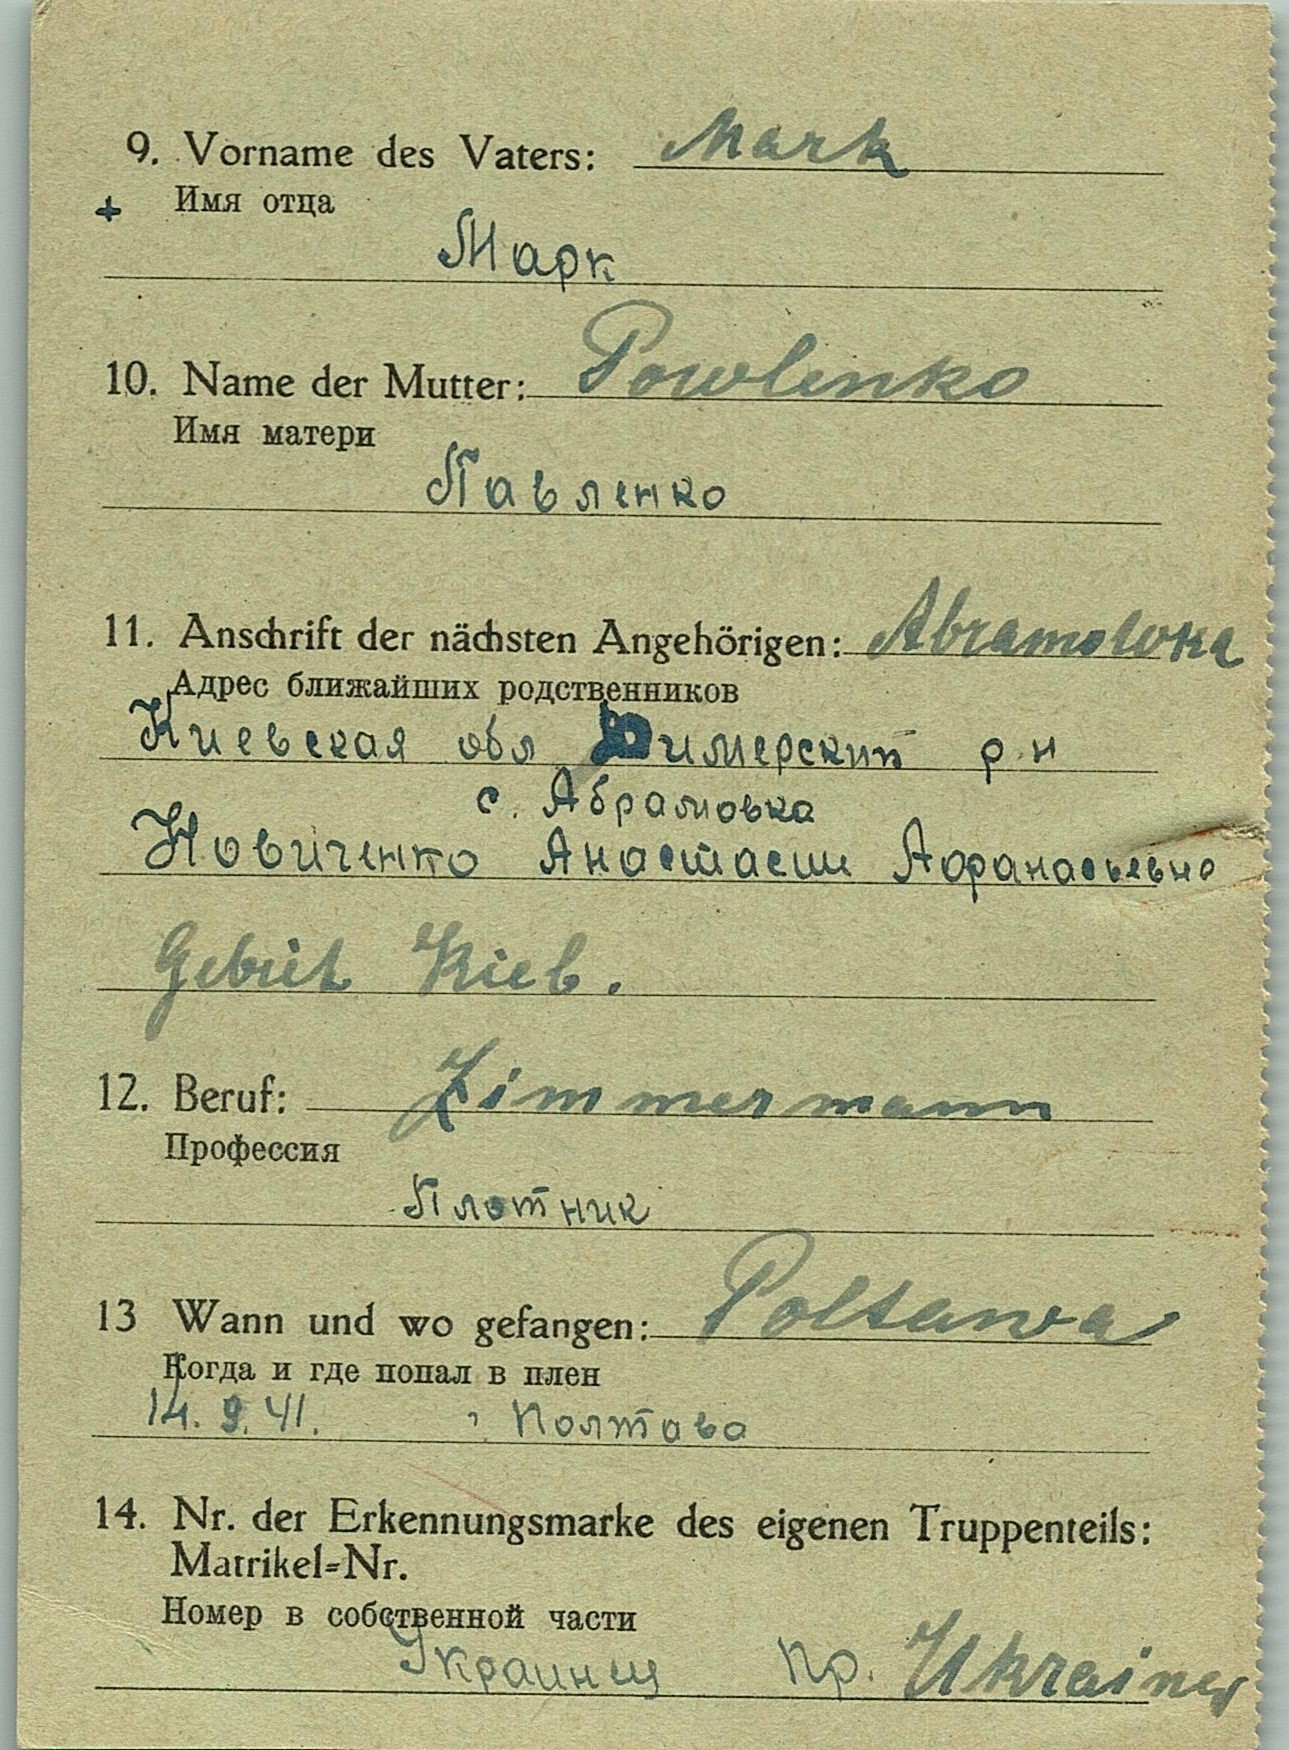 9. Vorname des Vaters: Mark
+ Имя отца
Марк
10. Name der Mutter: Powlenko
Имя матери
Павленко
11. Anschrift der nächsten Angehörigen: Abramowka
Адрес ближайших родственников
Киевская обл Димерский р-н
с. Абрамовка
Новиченко Анастасии Афанасьевне
Gebiet Kieb.
12. Beruf: Zimmermann
Профессия
Плотник
13 Wann und wo gefangen: Poltawa
Когда и где попал в плен
14. 9. 41. Полтава
14. Nr. der Erkennungsmarke des eigenen Truppenteils:
Matrikel=Nr.
Номер в собственной части
пр. Ukrainer